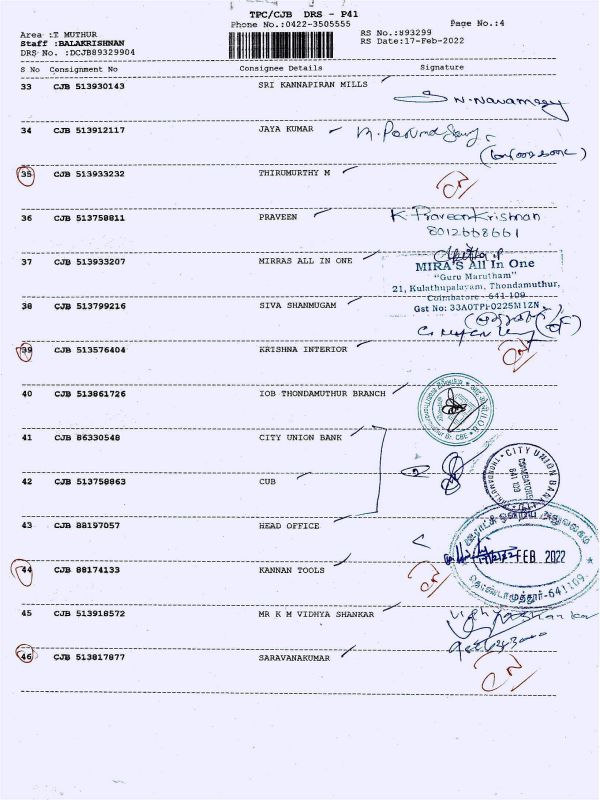 TPC/CJB DRS - P41
Phone No.:0422-3505555
Page No.:4
Area :T MUTHUR
Staff :BALAKRISHNAN
DRS No. :DCJB89329904
RS No.:893299
RS Date:17-Feb-2022
S No Consignment No Consignee Details Signature
33 CJB 513930143 SRI KANNAPIRAN MILLS
34 CJB 513912117 JAYA KUMAR
35 CJB 513933232 THIRUMURTHY M
36 CJB 513758811 PRAVEEN K. Praveen Krishnan
8012668661
37 CJB 513933207 MIRRAS ALL IN ONE
MIRA'S All In One
"Guru Marutham"
21, Kulathupalayam, Thondamuthur,
Coimbatore - 641 109
Gst No: 33AOTPP0225M1ZN
38 CJB 513799216 SIVA SHANMUGAM
39 CJB 513576404 KRISHNA INTERIOR
40 CJB 513861726 IOB THONDAMUTHUR BRANCH
41 CJB 86330548 CITY UNION BANK
CITY UNION BANK
COIMBATORE
641 109
42 CJB 513758863 CUB
43 CJB 88197057 HEAD OFFICE
FEB 2022
44 CJB 88174133 KANNAN TOOLS
45 CJB 513918572 MR K M VIDHYA SHANKAR
46 CJB 513817877 SARAVANAKUMAR